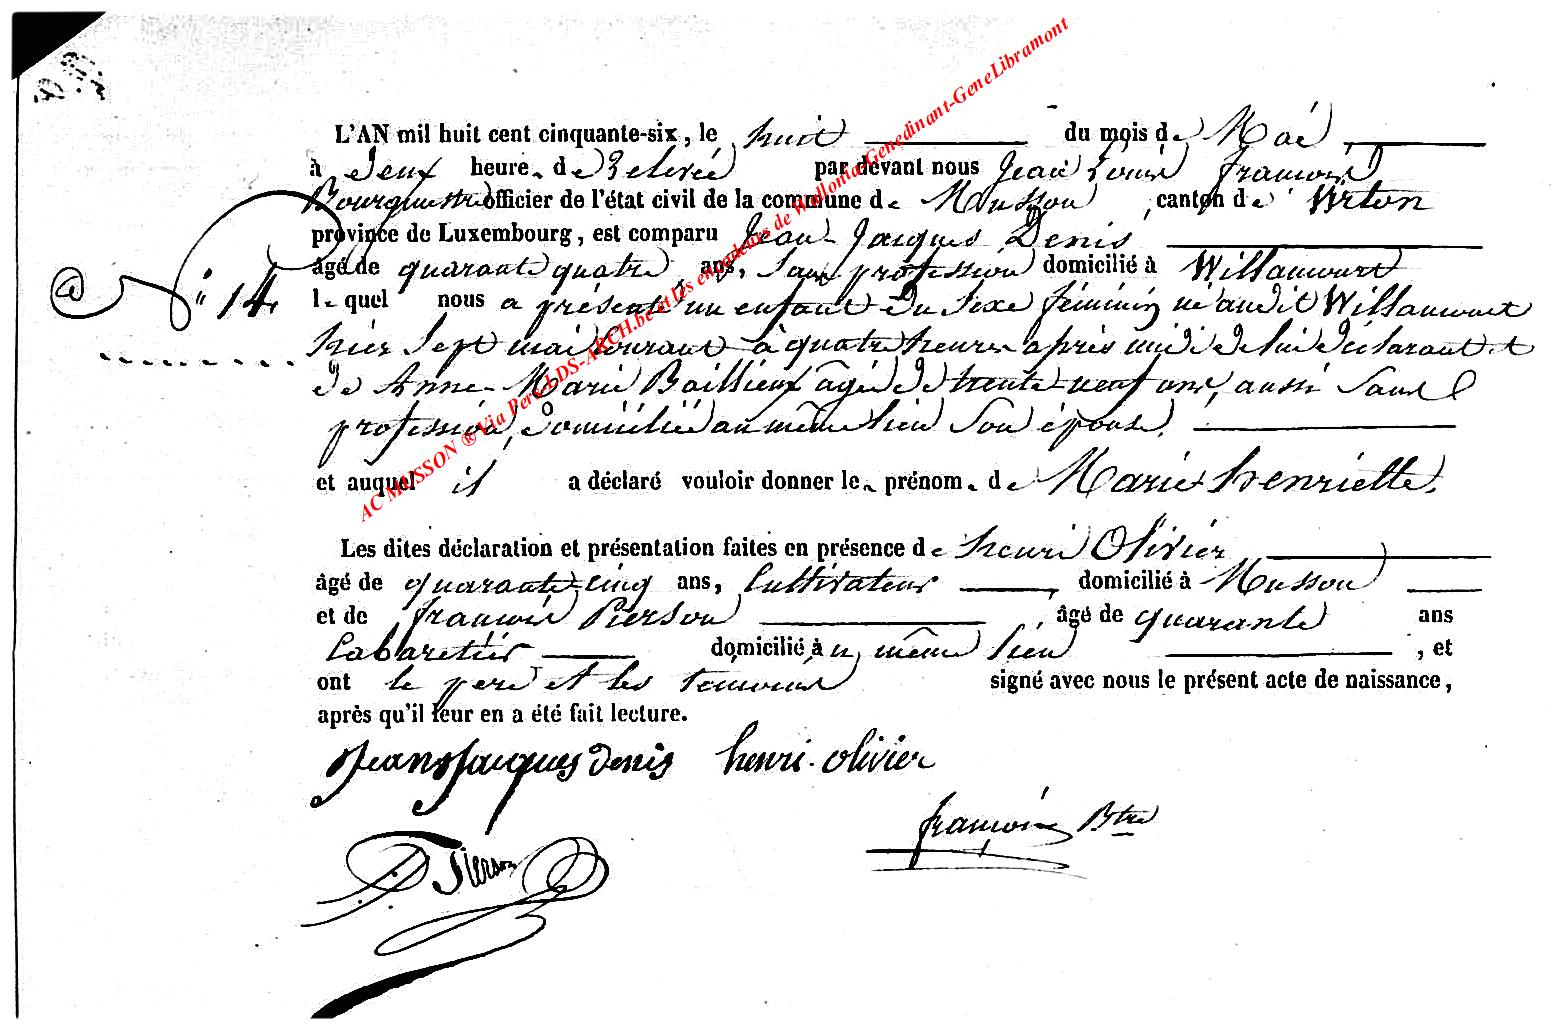 L'AN mil huit cent cinquante-six, le huit du mois de Mai,
à deux heure. de Relevée par devant nous Jean Louis françois
Bourguestre officier de l'état civil de la commune de Musson, canton de Virton
province de Luxembourg, est comparu Jean-Jacques Denis,
âgé de quarante quatre ans, sans profession domicilié à Willancourt
N° 14
lequel nous a présenté un enfant du sexe féminin né audit Willancourt
hier sept mai courant à quatre heures après midi de lui déclarant et
de Anne-Marie Baillieux âgée de trente-neuf ans, aussi sans
profession, domiciliée au même lieu son épouse.
et auquel il a déclaré vouloir donner le prénom de Marie henriette.
Les dites déclaration et présentation faites en présence de henri Olivier
âgé de quarante-cinq ans, Cultivateur, domicilié à Musson
et de françois Pierson âgé de quarante ans
Cabaretier domicilié au même lieu, et
ont le père et les témoins signé avec nous le présent acte de naissance,
après qu'il leur en a été fait lecture.
Jean Jacques denis henri. olivier
françois Btre
Pierson
AC MUSSON ® Via Pers LDS-ARCH.be et les encodeurs de Wallonia-Genedinant-GeneLibramont